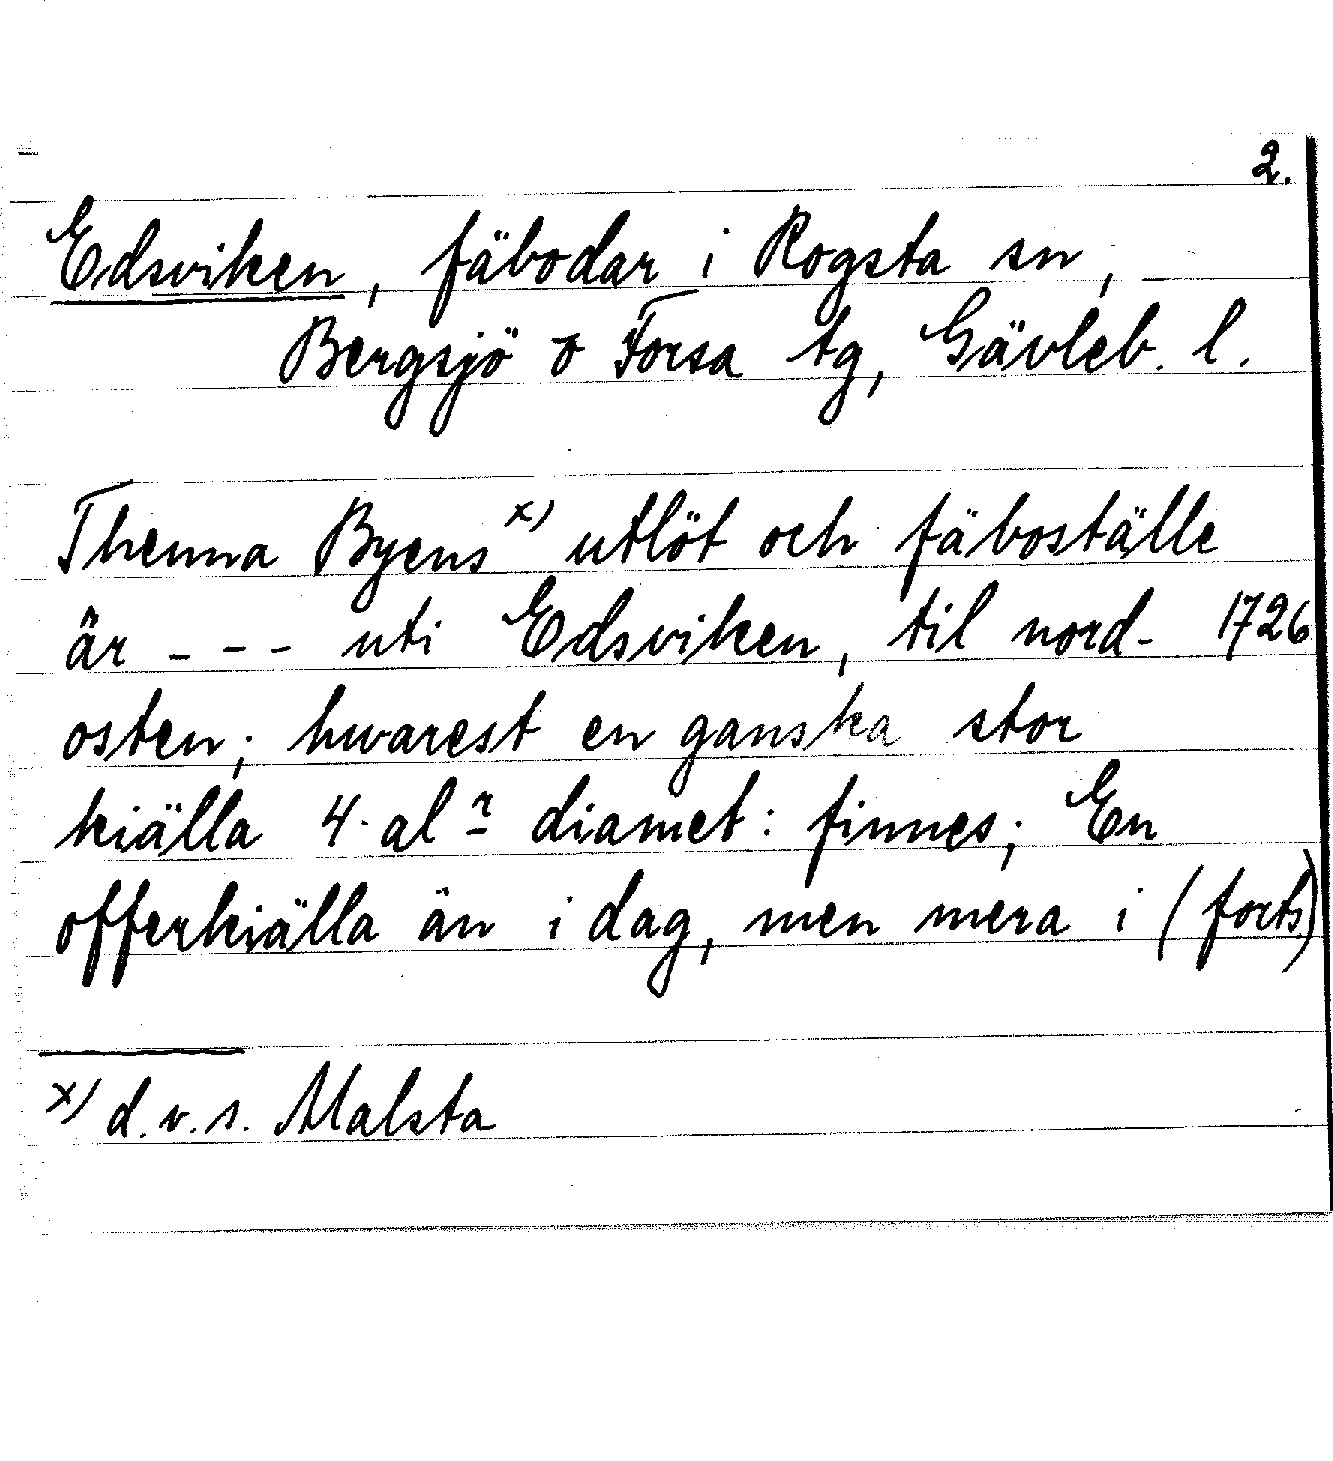 2.
Edsviken, fäbodar i Rogsta sn,
Bergsjö o Forsa tg, Gävleb. l.
Thenna Byens x) utlöt och fäboställe
är - - - uti Edsviken, til nord- 1726
osten; hwarest en ganska stor
kiälla 4. alr diamet: finnes; En
offerkiälla än i dag, men mera i (forts)
x) d.v.s. Malsta